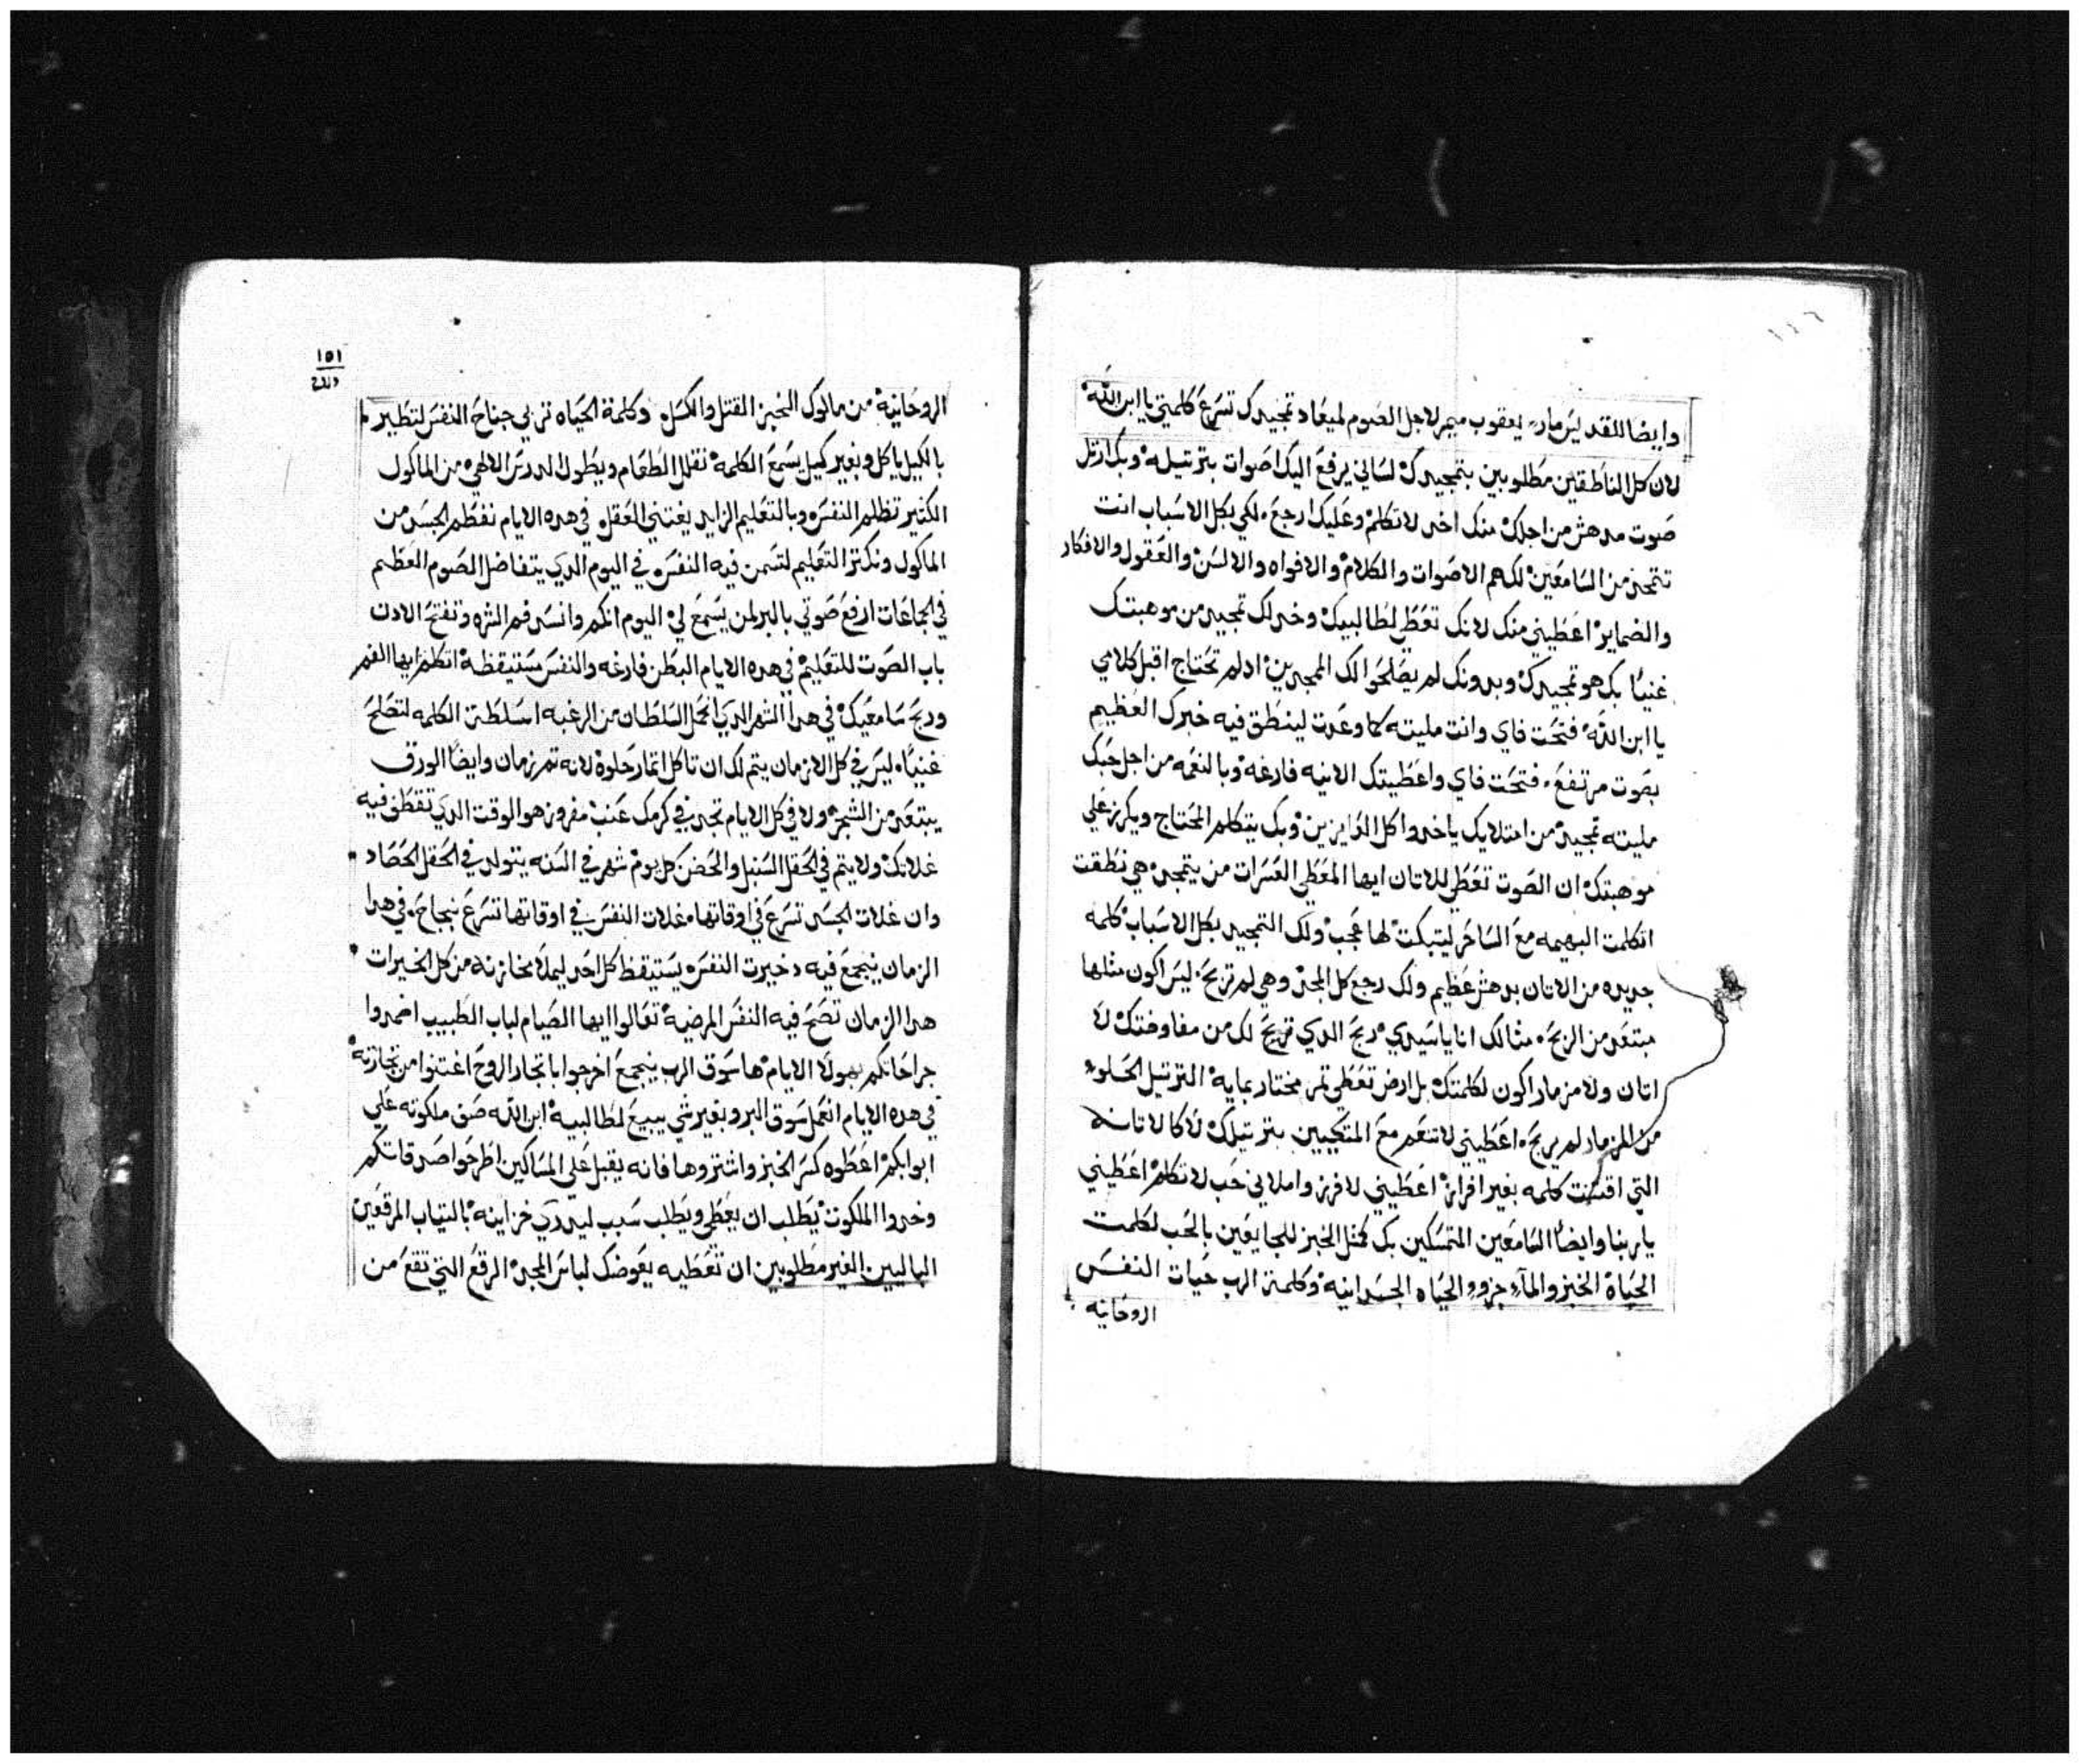 وايضا للقديس مار يعقوب ميمر لاجل الصوم لميعاد تمجيدك تسرع كلمتي يا ابن الله
لان كل الناطقين مطلوبين بتمجيدك لساني يرفع اليك اصوات بترتيله وبك ارتل
صوت مدهش من اجلك منك اخد لاتكلم وعليك ارجع لكي بكل الاسباب انت
تتمجد من السامعين لك هم الاصوات والكلام والافواه والالسن والعقول والافكار
والضماير اعطيني منك لانك تعطي لطالبيك وخد لك تمجيد من موهبتك
غنيا بك هو تمجيدك وبدونك لم يصلحوا لك الممجدين اد لم تحتاج اقبل كلامي
يا ابن الله فتحت فاي وانت مليته كما وعدت لينطق فيه خبرك العظيم
بصوت مرتفع فتحت فاي واعطيتك الانيه فارغه وبالنغمه من اجل حبك
مليته تمجيد من امتلايك ياخدوا كل العايزين وبك يتكلم المحتاج ويكرز علي
موهبتك ان الصوت تعطي للاتان ايها المعطي العسرات من يتمجد هي نطقت
اتكلمت البهيمه مع الساحر ليتبكت لها عجب ولك التمجيد بكل الاسباب كلمه
جديده من الاتان بدهش عظيم ولك رجع كل المجد وهي لم تربح ليس اكون مثلها
مبتعد من الربح مثالك انا يا سيدي ربح الدي تربح لك من مفاوضتك لا
اتان ولا مزمار اكون لكلمتك بل ارض تعطي تمر مختار بمايه الترتيل الحلو
من المزمار لم يربح اعطيني لاتنعم مع المتكيين بترتيلك لا كالاتانه
التي اقتنت كلمه بغير افراز اعطيني لافرز واملاني حب لاتكلم اعطيني
يا ربنا وايضا السامعين المتمسكين بك كمثل الخبز للجايعين بالحب لكلمت
الحياة الخبز والماء جزوء الحياه الجسدانيه وكلمة الرب حيات النفس
الروحانيه
١٥١
الروحانيه من مالوك الخبز القتل والكسل وكلمة الحياه تربي جناح النفس لتطير
بالكيل ياكل وبغير كيل يسمع الكلمه نقلل الطعام ويطول الدرس الالهي من الماكول
الكثير تظلم النفس وبالتعليم الزايد يغتني العقل في هده الايام نفطم الجسد من
الماكول ونكتر التعليم لتسمن فيه النفس في اليوم الدي يتفاضل الصوم العظيم
في الجماعات ارفع صوتي بالبر لمن يسمع لي اليوم انكم وانسد فم الشره وتفتح الادن
باب الصوت للتعليم في هده الايام البطن فارغه والنفس مستيقظه اتكلم ايها الفم
وربح سامعيك في هدا الشهر الدي انحل السلطان من الرغبه اسلطت الكلمه لتصلح
غنيا ليس في كل الازمان يتم لك ان تاكل اتمار حلوة لانه تمر زمان وايضا الورق
يبتعد من الشجر ولا في كل الايام تجد في كرمك عنب مفروز هو الوقت الدي تقطف فيه
غلاتك ولا يتم في الحقل السنبل والحضن كل يوم شهر في السنه يتولد في الحقل الحصاد
وان غلات الجسد تسرع في اوقاتها غلات النفس في اوقاتها تسرع بنجاح في هدا
الزمان ينجمع فيه دخيرت النفس يستيقظ كل احد ليملا مخازنه من كل الخيرات
هدا الزمان تصح فيه النفس المرضيه تعالوا ايها الصيام لباب الطبيب اضمدوا
جراحاتكم بهولا الايام ها سوق الرب ينجمع اخرجوا يا تجار الروح اغتنوا من تجارته
في هده الايام انعمل سوق البر وبغير شي يبيع لطالبيه ابن الله صف ملكوته علي
ابوابكم اعطوه كسر الخبز واشتروها فانه يقبل علي المساكين اطرحوا صدقاتكم
وخدوا الملكوت يطلب ان يعطي ويطلب سبب ليدري خزاينه بالتياب المرقعين
الباليين الغير مطلوبين ان تعطيه يعوضك لباس المجد الرقع التي تقع من